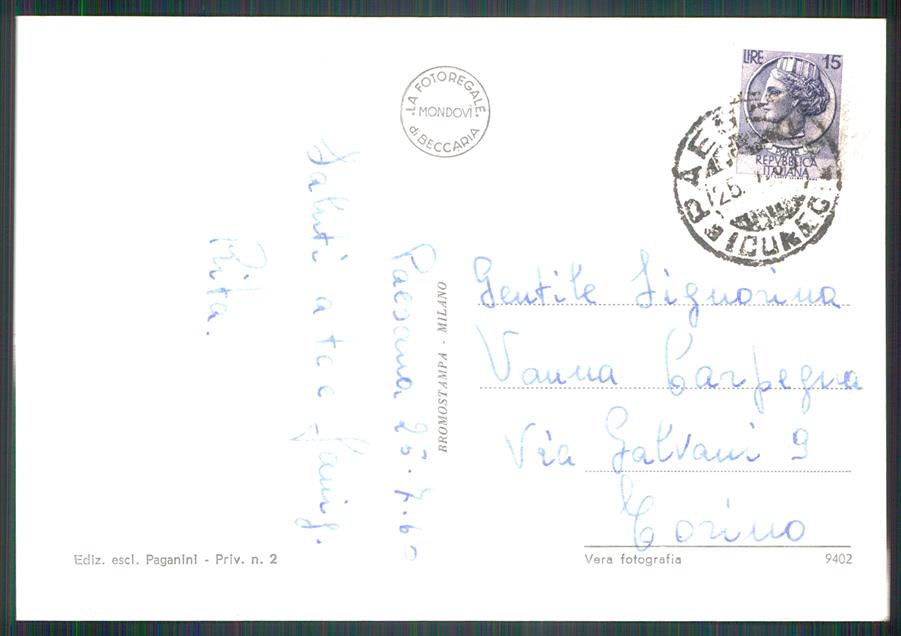 LA FOTOREGALE
MONDOVÌ
di BECCARIA
LIRE 15
POSTE
REPVBBLICA
ITALIANA
25.
CUNEO
Paesana 25-7-60
Saluti a te e famig.
Rita.
BROMOSTAMPA - MILANO
Gentile Signorina
Vanna Carpegna
Via Galvani 9
Torino
Ediz. escl. Paganini - Priv. n. 2
Vera fotografia 9402